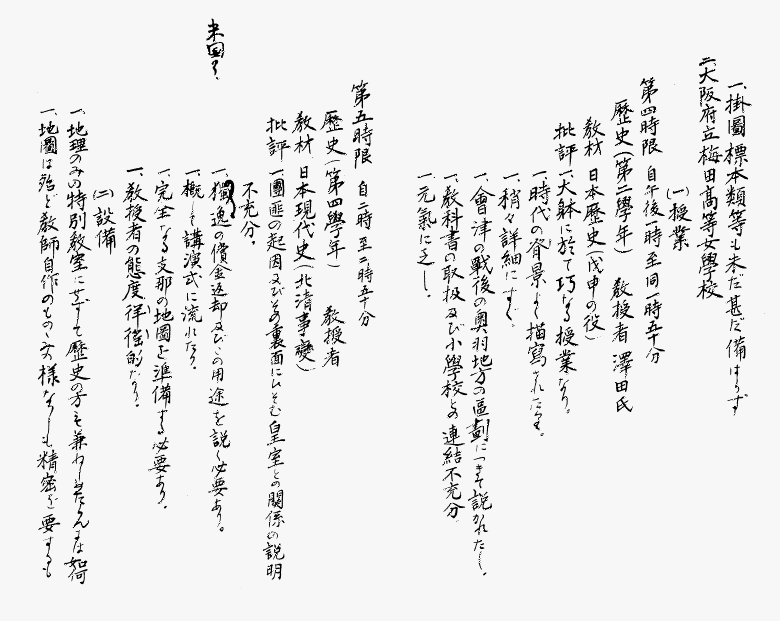 一、掛圖標本類等も未だ甚だ備はらず
二、大阪府立梅田高等女學校
(一)授業
第四時限 自午後一時至同一時五十分
歷史(第二學年) 敎授者 澤田氏
敎材 日本歷史(戊申の役)
批評 一、大躰に於て巧なる授業なり。
一、時代の背景よく描寫されたり。
一、稍々詳細にすぐ。
一、會津の戰後の奧羽地方の區劃につきて說かれたし。
一、敎科書の取扱及び小學校との連結不充分
一、元氣に乏し。
第五時限 自二時至二時五十分
歷史(第四學年) 敎授者
敎材 日本現代史(北淸事變)
批評 一、團匪の起因及びその裏面にひそむ皇室との關係の說明
不充分。
米国の
一、獨逸の償金返却及びその用途を說く必要あり。
一、概して講演式に流れたり。
一、完全なる支那の地圖を準備する必要あり。
一、敎授者の態度徉徊的なり。
(二)設備
一、地理のみの特別敎室にせずして歷史の方をも兼ねしめたらんには如何
一、地圖は殆ど敎師自作のもの多き樣なりしも精密を要するも